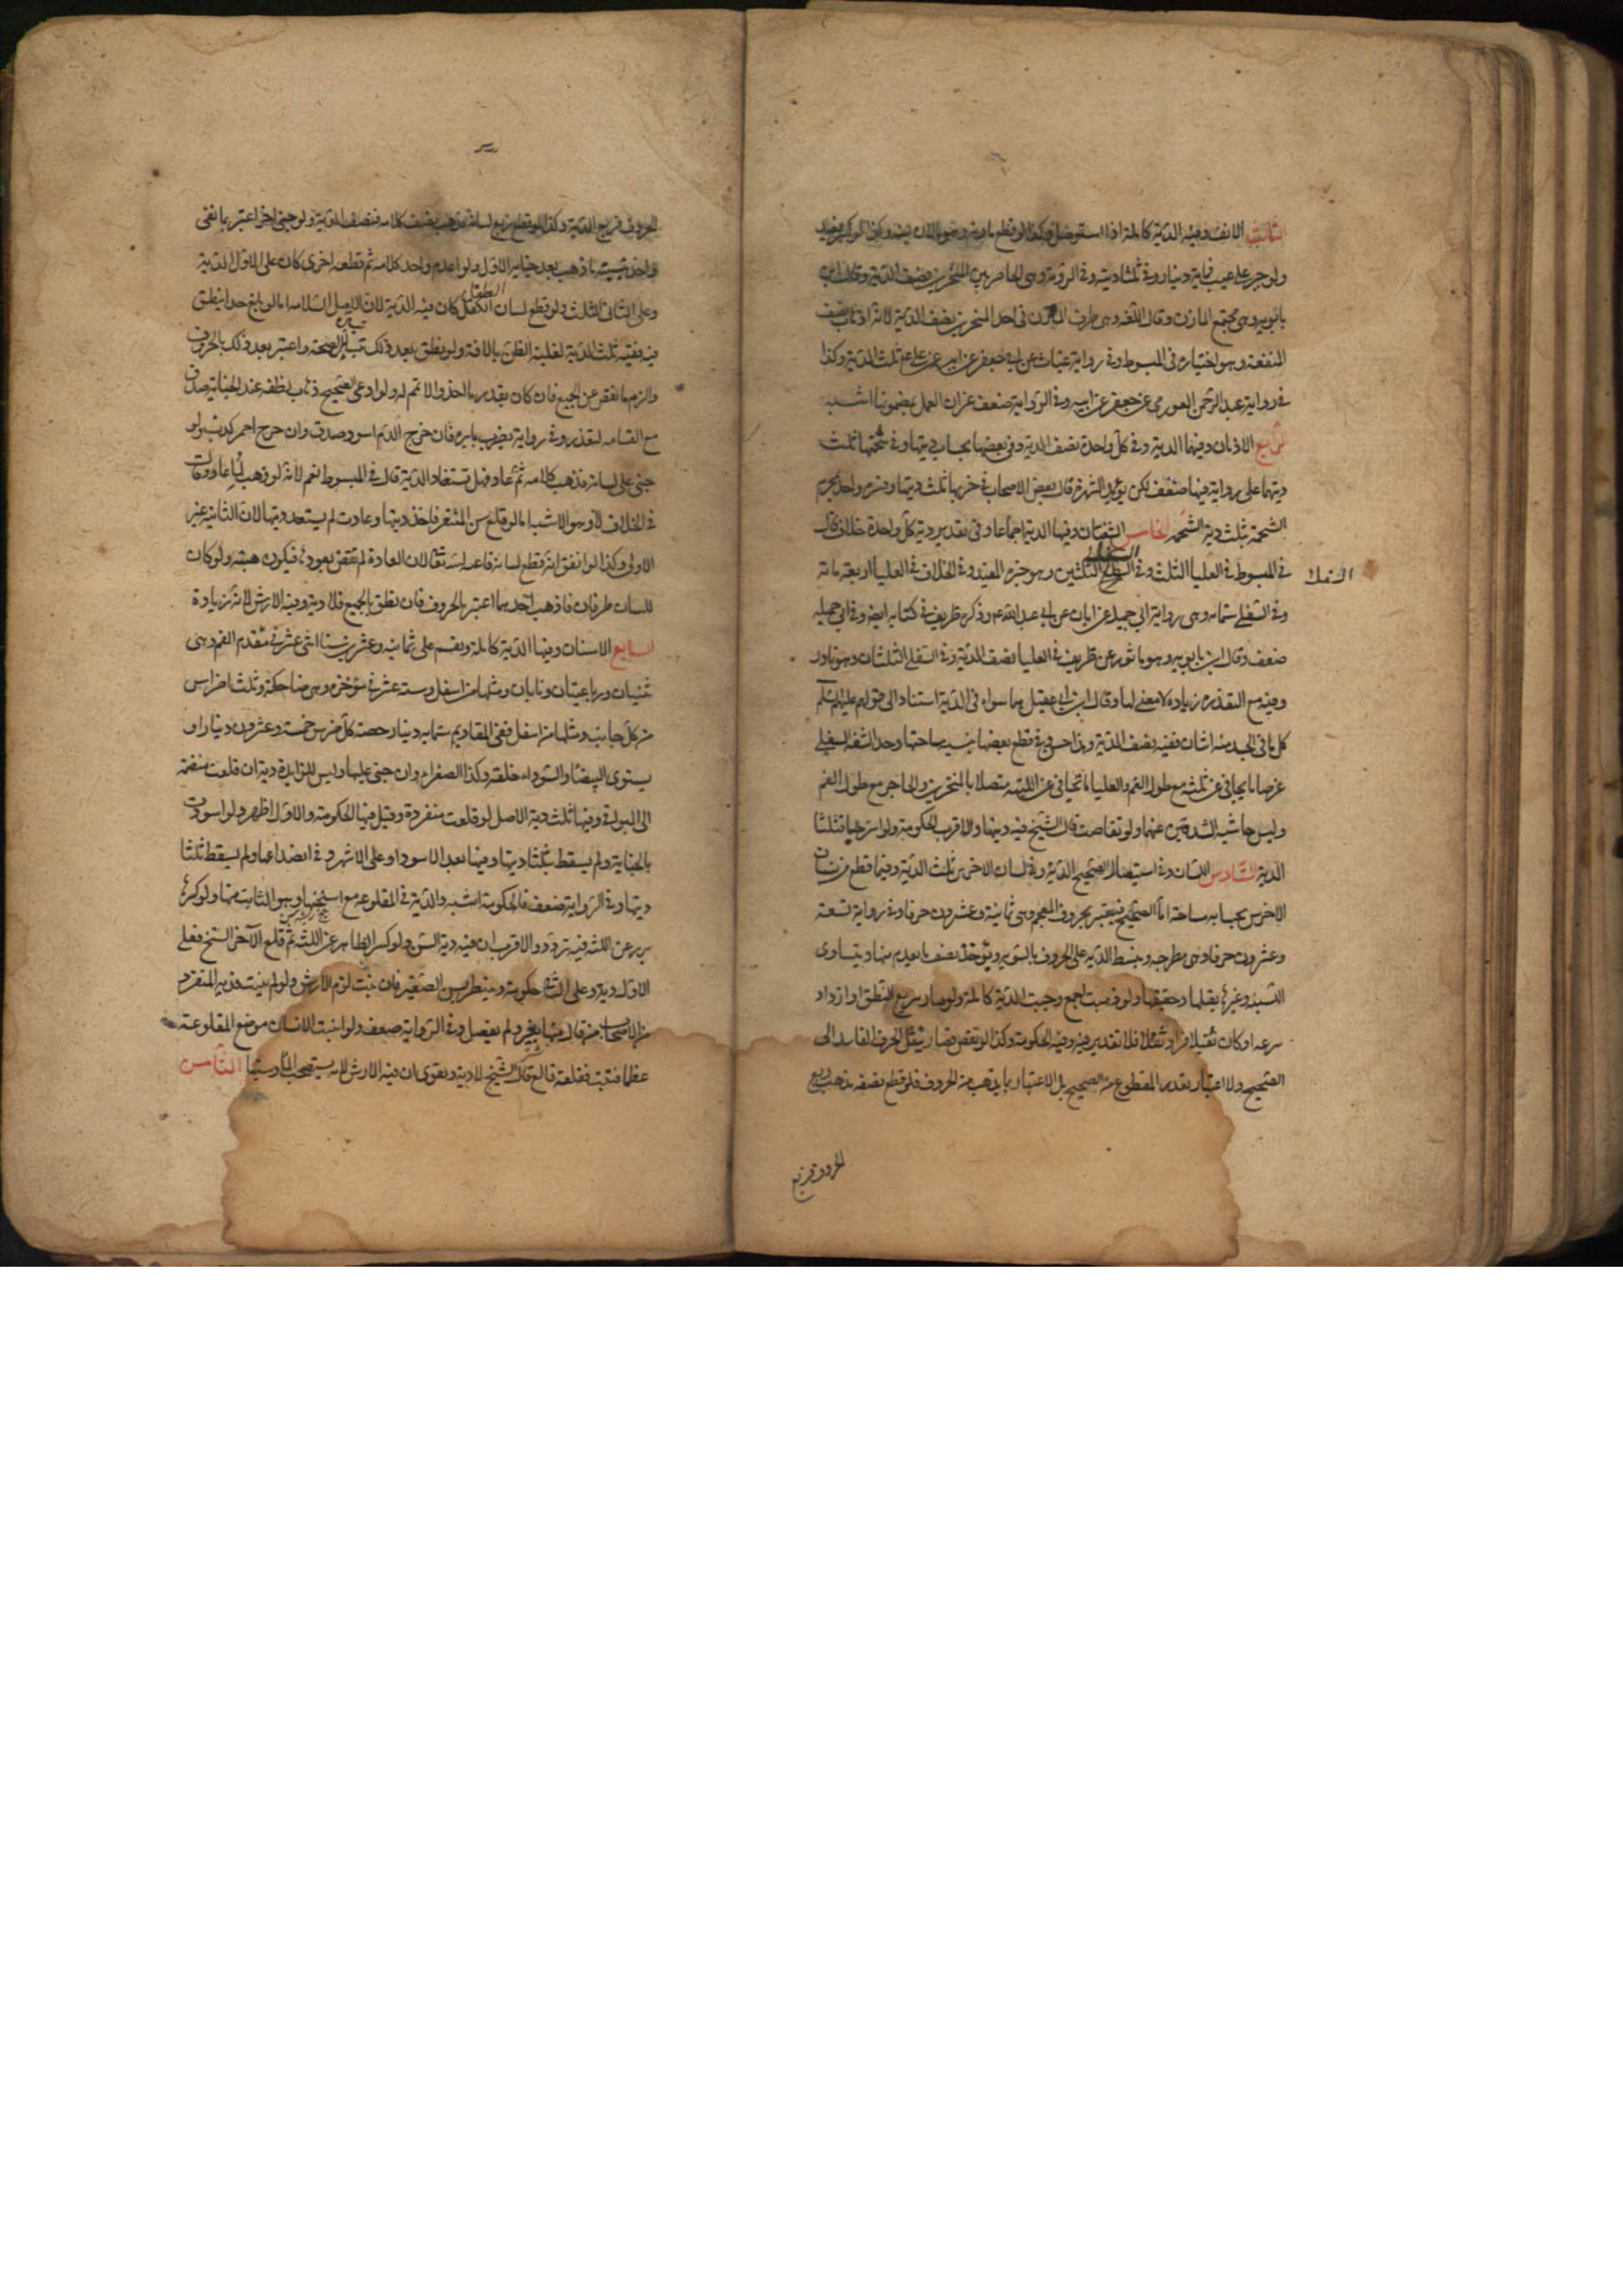 الثالث الانف وفيه الدية كاملة اذا استوصل وكذا لو قطع مارنه وهو مالان منه وكذا لو كسر ففسد
ولو جبر على غير عيب فماية دينار وفي شلله ثلثا ديته وفي الروثة وهي الحاجز بين المنخرين نصف الدية وقال ابن
بابويه وهي مجتمع المارن وقال اهل اللغة هي طرف المارن وفي احد المنخرين نصف الدية لانه اذهاب نصف
المنفعة وهو اختياره في المبسوط وفي رواية غياث عن ابي جعفر عن ابيه عن علي ع ثلث الدية وكذا
في رواية عبد الرحمن العرزمي عن جعفر عن ابيه وفي الرواية ضعف غير ان العمل بمضمونها اشبه
الرابع الاذنان وفيهما الدية وفي كل واحدة نصف الدية وفي بعضها بحساب ديتها وفي شحمتها ثلث
ديتها على رواية فيها ضعف لكن يؤيدها الشهرة قال بعض الاصحاب في خرمها ثلث ديتها وفسره واحد بخرم
الشحمة بثلث دية الشحمة الخامس الشفتان وفيهما الدية اجماعا وفي تقدير دية كل واحدة خلاف قال
في المبسوط في العليا الثلث وفي السفلى الثلثين وهو خيرة المفيد وفي الخلاف في العليا اربعة مائة
السفلى
وفي السفلى ستمائة وهي رواية ابي جميلة عن ابان عن ابي عبد الله ع وذكره ظريف في كتابه ايضا وفي ابي جميلة
ضعف وقال ابن بابويه وهو ماثور عن ظريف في العليا نصف الدية وفي السفلى الثلثان وهو نادر
وفيه مع الندرة زيادة لا معنى لها وقال ابن ابي عقيل هما سواء في الدية استنادا الى قولهم عليهم السلام
كل ما في الجسد منه اثنان ففيه نصف الدية وهذا حسن وفي قطع بعضها بنسبة مساحتها وحد الشفة السفلى
عرضا ما تجافى عن اللثة مع طول الفم والعليا ما تجافى عن اللثة متصلا بالمنخرين والحاجز مع طول الفم
وليس حاشية الشدقين منهما ولو تقلصت قال الشيخ فيه ديتها والاقرب الحكومة ولو استرختا فثلثا
الدية السادس اللسان وفي استيصال الصحيح الدية وفي لسان الاخرس ثلث الدية وفيما قطع من لسان
الاخرس بحسابه مساحة اما الصحيح فيعتبر بحروف المعجم وهي ثمانية وعشرون حرفا وفي رواية تسعة
وعشرون حرفا وهي مطرحة وتبسط الدية على الحروف بالسوية ويؤخذ نصيب ما يعدم منها ويتساوى
اللسنية وغيرها ثقيلها وخفيفها ولو ذهبت اجمع وجبت الدية كاملة ولو صار سريع النطق او ازداد
سرعة او كان ثقيلا فزاد ثقلا فلا تقدير فيه وفيه الحكومة وكذا لو نقص فصار ينقل الحرف الفاسد الى
الصحيح ولا اعتبار بقدر المقطوع من الصحيح بل الاعتبار بما يذهب من الحروف فلو قطع نصفه فذهب ربع
الحروف فربع
الحروف فربع الدية وكذا لو قطع ربع لسانه فذهب نصف كلامه فنصف الدية ولو جنى اخر اعتبر بما بقى
واخذ بنسبة ما ذهب بعد جناية الاول ولو اعدم واحد كلامه ثم قطعه اخر كان على الاول الدية
وعلى الثاني الثلث ولو قطع لسان الطفل كان فيه الدية لان الاصل السلامة اما لو بلغ حدا ينطق
فيه ففيه ثلث الدية لغلبة الظن بالافة ولو نطق بعد ذلك تبينا الصحة واعتبر بعد ذلك بالحروف
والزم ما نقص عن الجميع فان كان بقدر ما اخذ والا تمم له ولو ادعى الصحيح ذهاب نطقه عند الجناية صدق
مع القسامة لتعذر وفي رواية يضرب بابرة فان خرج الدم اسود صدق وان خرج احمر كذب ولو
جنى على لسانه فذهب كلامه ثم عاد فهل تستعاد الدية قال في المبسوط نعم لانه لو ذهب لما عاد وقال
في الخلاف لا وهو الاشبه اما لو قلع سن المثغر فاخذ ديتها وعادت لم يستعد ديتها لان الثانية غير
الاولى وكذا لو اتفق انه قطع لسانه فاعده الله تعالى لان العادة لم تقض بعوده فيكون هبة ولو كان
للسان طرفان فاذهب احدهما اعتبر بالحروف فان نطق بالجميع فلا دية وفيه الارش لانه زيادة
السابع الاسنان وفيها الدية كاملة وتقسم على ثمانية وعشرين سنا اثنى عشر في مقدم الفم وهي
ثنيتان ورباعيتان ونابان ومثلها من اسفل وستة عشر في مؤخره وهي ضاحكة وثلثة اضراس
من كل جانب ومثلها من اسفل ففي المقاديم ستماية دينار حصة كل ضرس خمسة وعشرون دينارا و
يستوى البيضاء والسوداء خلقة وكذا الصفراء وان جنى عليها وليس للزايدة دية ان قلعت منضمة
الى البواقي وفيها ثلث دية الاصل لو قلعت منفردة وقيل فيها الحكومة والاول اظهر ولو اسودت
بالجناية ولم يسقط فثلثا ديتها وفيها بعد الاسوداد على الاشهر وفي انصداعها ولم يسقط ثلثا
ديتها وفي الرواية ضعف فالحكومة اشبه والدية في المقلوعة مع سنخها وهو الثابت منها ولو كسر ما
برز عن اللثة فيه تردد والاقرب ان فيه دية السن ولو كسر الظاهر عن اللثة ثم قلع الاخر السنخ فعلى
الاول دية وعلى الثاني حكومة وينتظر بسن الصغير فان نبتت لزم الارش ولو لم ينبت فدية المثغر و
من الاصحاب من قال فيها بعير ولم يفصل وفي الرواية ضعف ولو انبت الانسان موضع المقلوعة
عظما فنبت فقلعه قالع قال الشيخ لا دية ويقوى ان فيه الارش لانه يستصحب الما وشينا الثامن